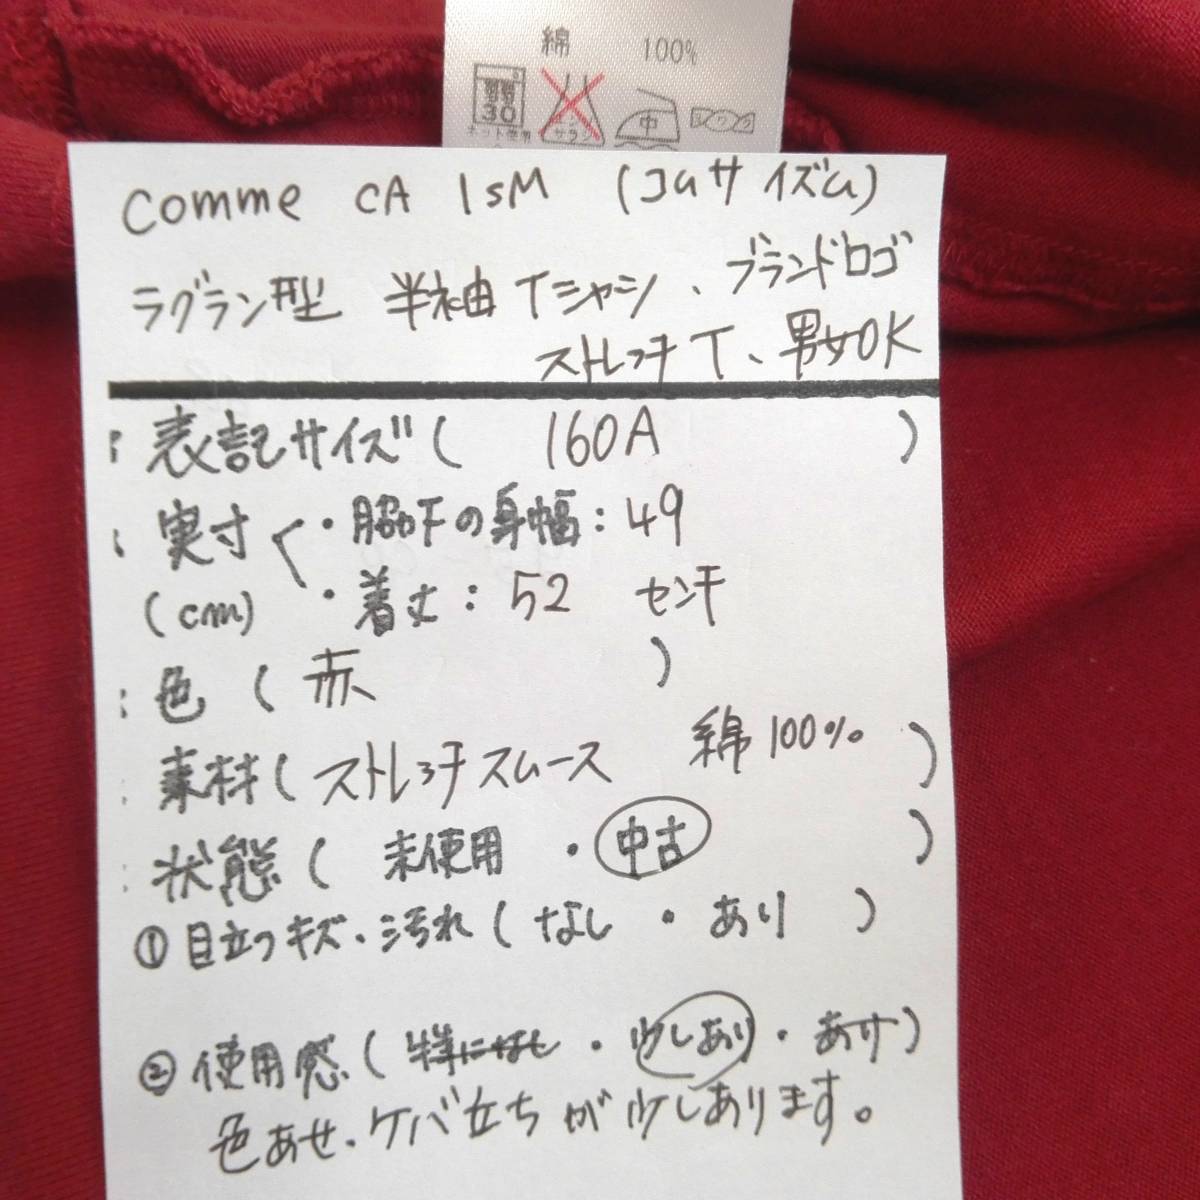 綿 100%
30 中
ネット使用
Comme CA ISM (コムサ イズム)
ラグラン型 半袖 Tシャツ、ブランドロゴ
ストレッチ T、男女OK
: 表記サイズ( 160A )
: 実寸 ・脇下の身幅: 49
(cm) ・着丈: 52 センチ
: 色 ( 赤 )
: 素材( ストレッチスムース 綿 100% )
: 状態 ( 未使用 ・ 中古 )
① 目立つキズ、汚れ ( なし ・ あり )
② 使用感 ( 特になし ・ 少しあり ・ あり )
色あせ、ケバ立ちが少しあります。